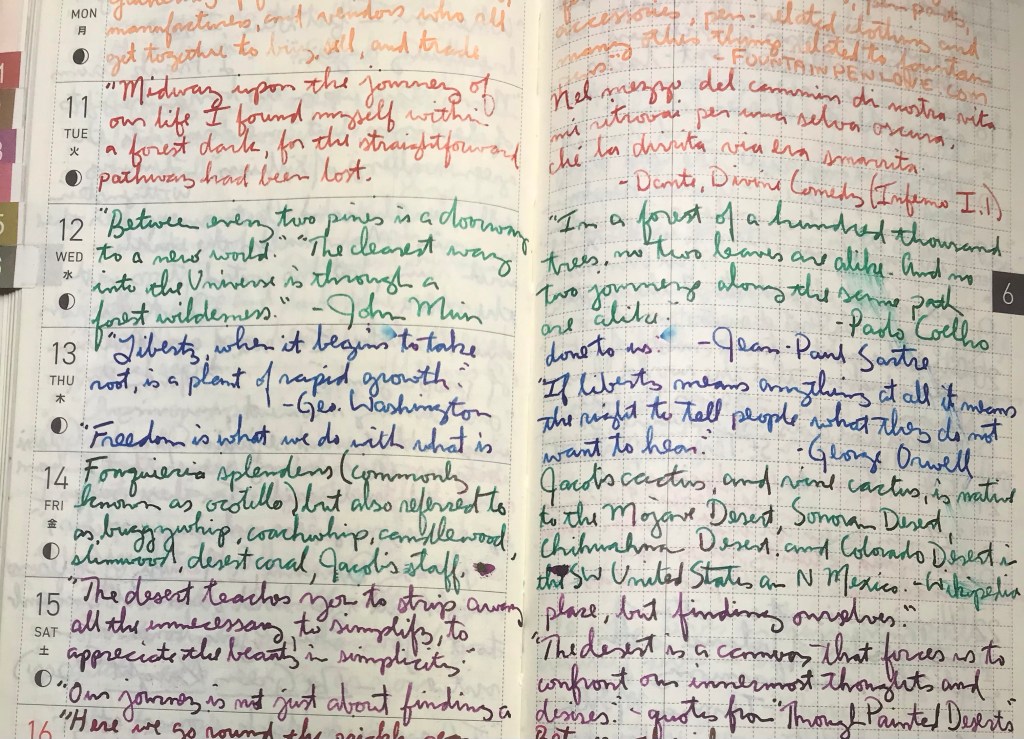 MON
月
manufacturers, and vendors who all
get together to buy, sell, and trade
11
TUE
火
"Midway upon the journey of
our life I found myself within
a forest dark, for the straightforward
pathway had been lost.
12
WED
水
"Between every two pines is a doorway
to a new world." "The clearest way
into the Universe is through a
forest wilderness." - John Muir
13
THU
木
"Liberty, when it begins to take
root, is a plant of rapid growth."
- Geo. Washington
"Freedom is what we do with what is
14
FRI
金
Fouquieria splendens (commonly
known as ocotillo) but also referred to
as, buggywhip, coachwhip, candlewood,
slimwood, desert coral, Jacob's staff,
15
SAT
土
"The desert teaches you to strip away
all the unnecessary, to simplify, to
appreciate the beauty in simplicity."
"Our journey is not just about finding a
16
"Here we go round the prickly pear
accessories, pen-related clothing and
many other things related to fountain
pens." - FOUNTAINPENLOVE.COM
Nel mezzo del cammin di nostra vita
mi ritrovai per una selva oscura,
ché la diritta via era smarrita.
- Dante, Divine Comedy (Inferno I.1)
"In a forest of a hundred thousand
trees, no two leaves are alike. And no
two journeys along the same path
are alike."
- Paolo Coelho
6
done to us." - Jean-Paul Sartre
"If liberty means anything at all it means
the right to tell people what they do not
want to hear." - George Orwell
Jacob's cactus, and vine cactus, is native
to the Mojave Desert, Sonoran Desert,
Chihuahua Desert, and Colorado Desert in
the SW United States an N Mexico. - Wikipedia
place, but finding ourselves."
"The desert is a canvas that forces us to
confront our innermost thoughts and
desires." - quotes from "Through Painted Deserts"